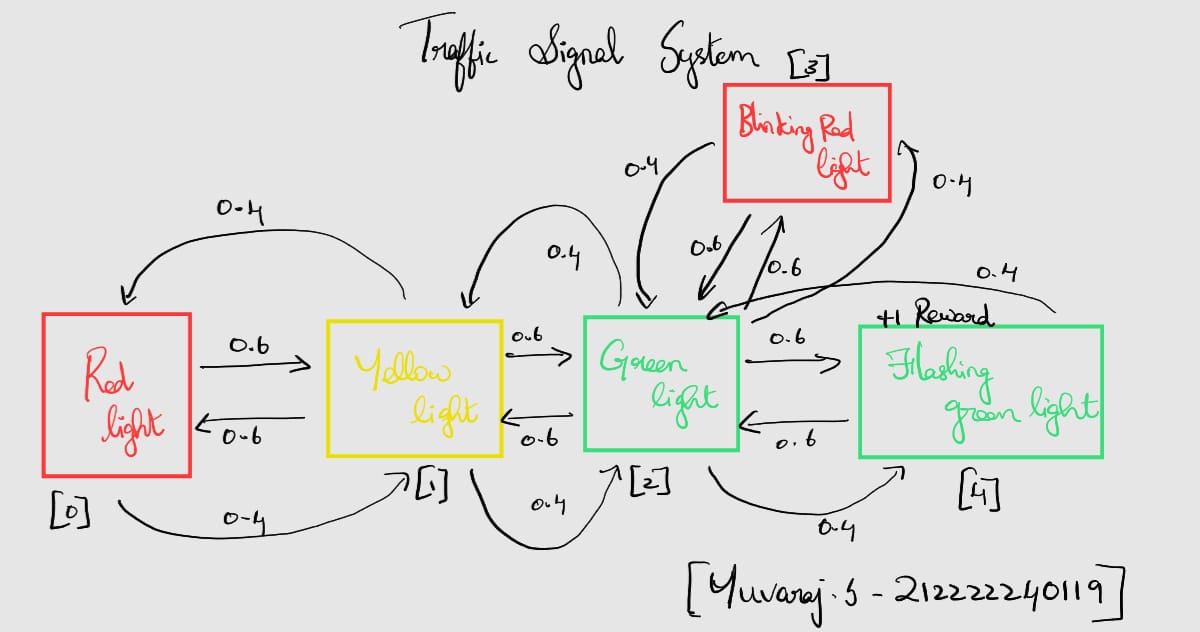 Traffic Signal System
[3]
Blinking Red
light
0.4
0.4
0.4
0.4
0.6
0.6
0.4
+1 Reward
Red
light
0.6
0.6
Yellow
light
0.6
0.6
Green
light
0.6
0.6
Flashing
green light
[0]
0-4
[1]
0.4
[2]
0.4
[4]
[Yuvaraj.S - 212222240119]